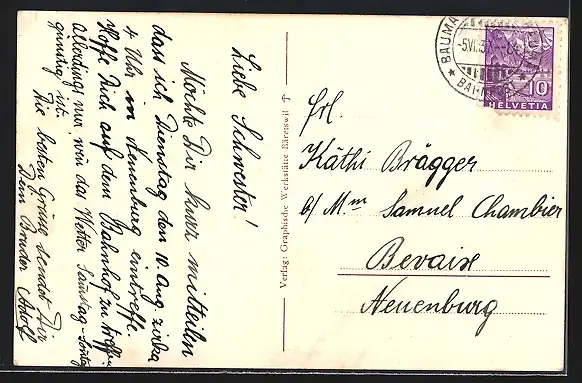 Liebe Schwester!
Möchte Dir kurz mitteilen
dass ich Dienstag den 10. Aug. zirka
4 Uhr in Neuenburg eintreffe.
Hoffe Dich auf dem Bahnhof zu treffen
Allerdings nur wen das Wetter Samstag-Sontag
günstig ist.
Die besten Grüsse sendet Dir
Dein Bruder Adolf
Verlag: Graphische Werkstätte Bäretswil
BAUMA
-5.VI.3
BAHN
10
HELVETIA
Frl.
Käthi Brägger
b/ Mm Samuel Chambier
Bevaix
Neuenburg